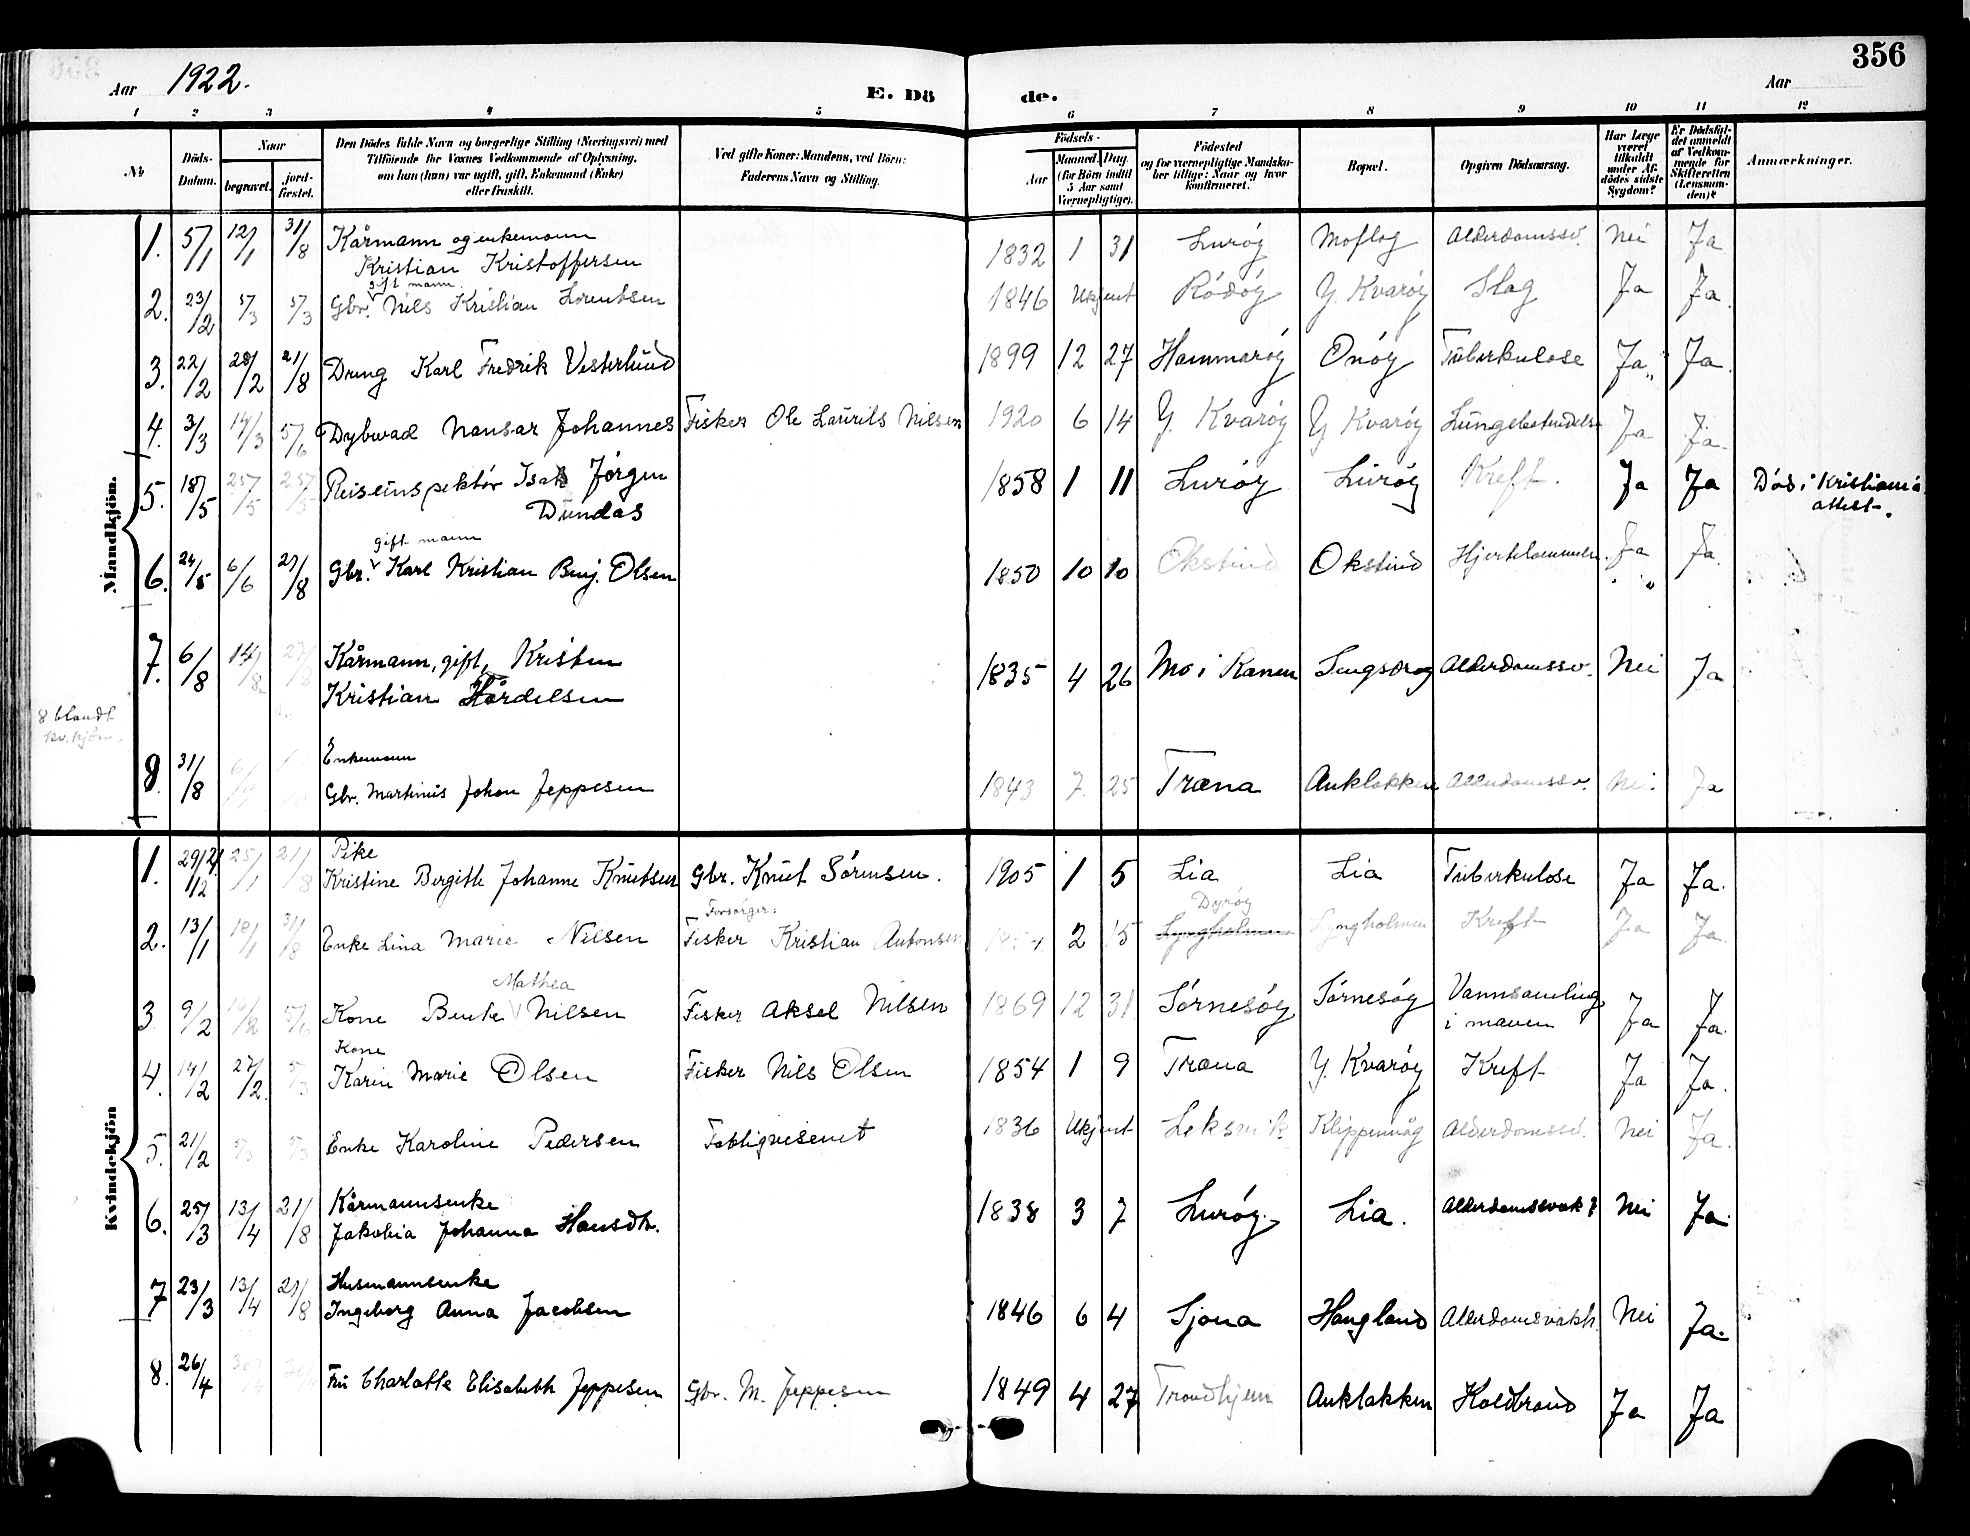 356
Aar 1922. E. Dö de. Aar
1 2 3 4 5 6 7 8 9 10 11 12
No
Döds-Datum.
Naar
begravet.
jord-fæstet.
Den Dödes fulde Navn og borgerlige Stilling (Næringsvei) med
Tilföiende for Voxnes Vedkommende af Oplysning,
om han (hun) var ugift, gift, Enkemand (Enke)
eller fraskilt.
Ved gifte Koner: Mandens, ved Börn:
Faderens Navn og Stilling.
Födsels-
Aar
Maaned. Dag.
(for Börn indtil
5 Aar samt
Værnepligtige).
Födested
og for værnepligtige Mandska-
ber tillige: Naar og hvor
konfirmeret.
Bopæl.
Opgiven Dödsaarsag.
Har Læge
været
tilkaldt
under Af-
dödes sidste
Sygdom?
Er Dödsfal-
det anmeldt
af Vedkom-
mende for
Skifteretten
(Lensman-
den)?
Anmærkninger.
Mandkjön.
1. 5/1 12/1 31/8 Kårmann og enkemann
Kristian Kristoffersen 1832 1 31 Luröy Moflag Alderdomssv. Nei Ja
gift mann
2. 23/2 5/3 5/3 Gbr. Nils Kristian Lorentsen 1846 Ukjent Rödöy Y. Kvaröy Slag Ja Ja.
3. 22/2 28/2 21/8 Dreng Karl Fredrik Vesterlund 1899 12 27 Hammaröy Onöy Tuberkulose Ja Ja.
4. 3/3 14/3 5/6 Dybwad Nansar Johannes Fisker Ole Laurits Nilsen 1920 6 14 Y. Kvaröy Y Kvaröy Lungebetendelse Ja Ja.
5. 18/5 25/5 25/5 Reiseinspektör Isak Jörgen
Dundas 1858 1 11 Luröy Luröy Kreft. Ja Ja Död i Kristiania
attest.
gift mann
6. 24/5 6/6 29/8 Gbr. Karl Kristian Benj. Olsen 1850 10 10 Okstind Okstind Hjertelammelse. Ja Ja.
7. 6/8 14/8 27/8 Kårmann, gift, Kristen
Kristian Hårdelsen 1835 4 26 Mo i Ranen Sengsdrag Alderdomssv. Nei Ja
8 blandt
kv. kjön.
Enkemann
8. 31/8 Gbr. Martinus Johan Jeppesen 1843 7 25 Træna Auklakken Alderdomssv. Nei Ja
Kvindekjön
Pike
1. 29/12 25/1 21/8 Kristine Bergitte Johanne Knutsen Gbr. Knut Sörensen. 1905 1 5 Lia Lia Tuberkulose Ja Ja.
Forsörger: Dyröy
2. 13/1 18/1 31/8 Enke Lina Marie Nilsen Fisker Kristian Antonsen 2 15 Lyngholmen Lyngholmen Kreft Ja Ja.
Mathea
3 9/2 16/2 5/6 Kone Bente Nilsen Fisker Aksel Nilsen 1869 12 31 Törnesöy Törnesöy Vannsamling
i maven Ja Ja.
Kone
4. 14/2 27/2. 5/3 Karin Marie Olsen Fisker Nils Olsen 1854 1 9 Træna Y. Kvaröy Kreft Ja Ja.
5. 21/2 5/3 5/3 Enke Karoline Pedersen Fattigvesenet 1836 Ukjent Leksvik Klippinvåg Alderdomssv. Nei Ja.
6. 25/3 13/4 21/8 Kårmannsenke
Jakobia Johanna Hansdtr. 1838 3 7 Luröy. Lia. Alderdomssvakh Nei Ja.
7 23/3 13/4 29/8 Husmannsenke
Ingeborg Anna Jacobsen 1846 6 4 Sjona Haugland Alderdomsvakh. Nei Ja.
8. 26/4 30/4 Fru Charlotte Elisabeth Jeppesen Gbr. M. Jeppesen 1849 4 27 Trondhjem Auklakken Koldbrand Ja Ja